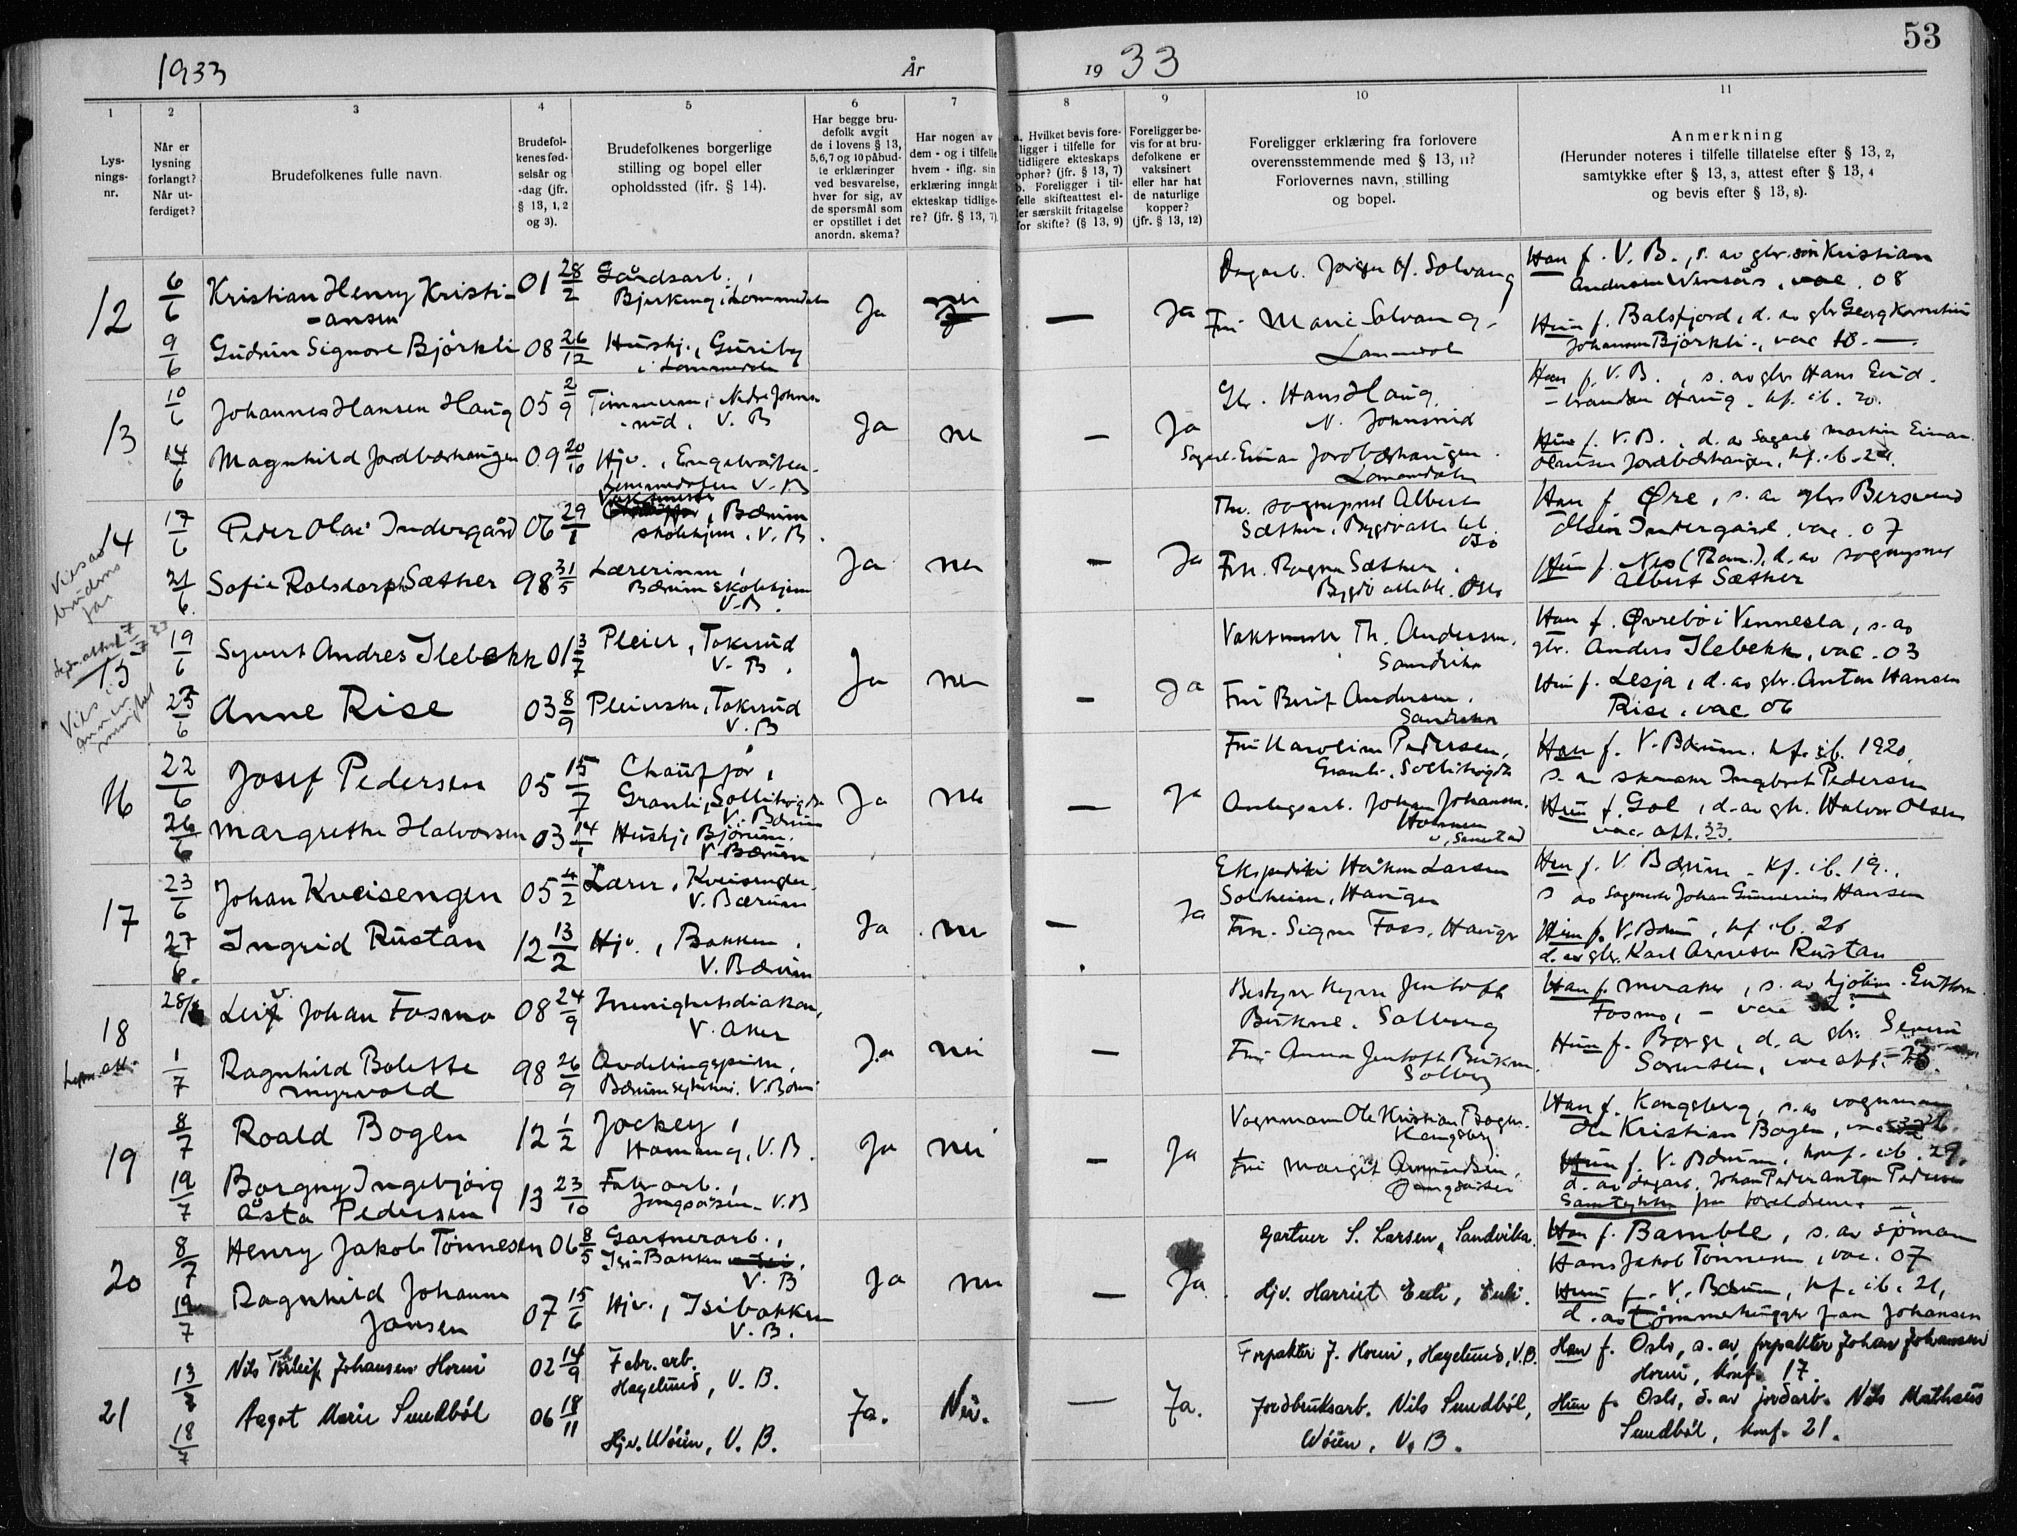 53
1933 År 19 33
1 2 3 4 5 6 7 8 9 10 11
Lysnings-nr.
Når er lysning forlangt? Når utferdiget?
Brudefolkenes fulle navn.
Brudefolkenes fødselsår og -dag (jfr. § 13, 1, 2 og 3).
Brudefolkenes borgerlige stilling og bopel eller opholdssted (jfr. § 14).
Har begge brudefolk avgit de i lovens § 13, 5, 6, 7 og 10 påbudte erklæringer ved besvarelse, hver for sig, av de spørsmål som er opstillet i det anordn. skema?
Har nogen av dem - og i tilfelle hvem - iflg. sin erklæring inngått ekteskap tidligere? (jfr. § 13, 7)
a. Hvilket bevis foreligger i tilfelle for tidligere ekteskaps ophør? (jfr. § 13, 7) b. Foreligger i tilfelle skifteattest eller særskilt fritagelse for skifte? (§ 13, 9)
Foreligger bevis for at brudefolkene er vaksinert eller har hat de naturlige kopper? (jfr. § 13, 12)
Foreligger erklæring fra forlovere overensstemmende med § 13, 11? Forlovernes navn, stilling og bopel.
Anmerkning
(Herunder noteres i tilfelle tillatelse efter § 13, 2, samtykke efter § 13, 3, attest efter § 13, 4 og bevis efter § 13, 8).
12 6/6 Kristian Henry Kristi-ansen 01 28/2 Gårdsarb., Ja nei — Ja
Han f. V. B., s. av gbr. Kristian Andersen, vac. 08
9/6 Gudrun Signore Björkli 08 26/12 Hushj., Guriby i Lommedalen
Fru Marie Solvang, Lommedal
Hun f. Balsfjord, d. av gbr Georg Johansen Björkli, vac
13 10/6 Johannes Hansen Haug 05 2/9 V. B Ja nei — Ja
Gbr. Hans Haug N. Johnsrud
Han f. V. B., s. av gbr Hans Haug. kf. ib. 20.
14/6 Magnhild Jordbærhaugen 09 20/10 Hjv., Lommedalen V. B
Einar Jordbærhaugen, Lommedalen
Hun f. V. B., d. av Sagarb Martin Jordbærhaugen, kf. ib. 24.
14 17/6 Peder Olai Indergård 06 29/1 Vaktmester, Bærum skolehjem, V. B. Ja nei — Ja
Th. sogneprest Albert Sæther, Bygdø allé Oslo
Han f. Øre, s. av gbr Olsen Indergård vac. 07
Vies av brudens far
21/6 Sofie Rolsdorph Sæther 98 31/5 Lærerinne, Bærum skolehjem V. B.
Frk. Ragna Sæther. Bygdø allé Oslo
Hun f. Nes (Rom.), d. av sogneprest Albert Sæther
15 19/6 Syvert Andres Ilebekk 01 3/7 Pleier, Tokerud V. B. Ja nei — Ja
Vaktmester Th. Andersen, Sandvika
Han f. Øvrebø i Vennesla, s. av gbr. Anders Ilebekk, vac. 03
Vies i annen menighet
23/6 Anne Rise 03 8/9 Pleierske, Tokerud V. B
Fru Berit Andersen, Sandvika
Hun f. Lesja, d. av gbr. Anton Hansen Rise, vac 06
16 22/6 Josef Pedersen 05 15/7 Chauffør, Granli, Sollihøgda V. Bærum Ja nei — Ja
Fru Karoline Pedersen, Granli, Sollihøgda
Han f. V. Bærum. kf. ib. 1920. s. av Ingbret Pedersen
26/6 Margrethe Halvorsen 03 14/1 Hushj., Bjørum. V. Bærum
Anlegsarb. Johan Johansen,
Hun f. Gol, d. av gbr. Halvor Olsen vac. att. 33.
17 23/6 Johan Kveisengen 05 4/2 Lærer, Kveisengen. V. Bærum Ja nei — Ja
Håkon Larsen Solheim, Haugen
Han f. V. Bærum. kf. ib. 19., s av Johan Gunnerius Hansen
27/6. Ingrid Rustan 12 13/2 Hjv., Bakken, V. Bærum
Frk. Signe Foss, Hauger
Hun f. V. Bærum, kf. ib. 26 d. av gbr. Karl Arnesen Rustan
18 28/6 Leif Johan Fosmo 08 24/9 Menighetsdiakon, V. Aker Ja nei —
Bestyrer Jentoft Birkne. Solberg
Han f. Meraker, s. av Fosmo, – vac
1/7 Ragnhild Bolette Myrvold 98 26/9 Avdelingspleierske, Bærum sykehus. V. Bærum
Fru Anna Jentoft Birkne Solberg
Hun f. Borge, d. av gbr. Severin Sørensen, vac att.
19 8/7 Roald Bogen 12 1/2 Jockey, Hamang, V. B. Ja nei — Ja
Vognmann Ole Kristian Bogen. Kongsberg
Han f. Kongsberg, s. av vognmann Ole Kristian Bogen, vac
19/7 Borgny Ingebjörg Åsta Pedersen 13 23/10 Fabr. arb., V. B
Fru Margit Amundsen,
Hun f. V. Bærum, konf. ib. 29. d. av dagarb. Johan Peder Anton Pedersen Samtykke fra foreldrene.
20 8/7 Henry Jakob Tönnesen 06 8/5 Gartnerarb., Isi-Bakken V. B Ja nei — Ja
Gartner S. Larsen, Sandvika.
Han f. Bamble, s. av sjömann Hans Jakob Tönnesen, vac. 07
19/7 Ragnhild Johanne Jansen 07 15/6 Hjv., Isibakken V. B.
Hjv. Harriet Eneli, Eneli.
Hun f. V. Bærum, kf. ib. 21, d. av Tömmerhugger Johansen
21 13/7 Nils Thorleif Johansen Horni 02 14/9 Fabr. arb. Hagelund, V. B. Ja. Nei. — Ja.
Forpakter J. Horni, Hagelund, V. B.
Han f. Oslo, s. av forpakter Johan Johansen Horni, konf. 17.
18/7 Aagot Marie Sundböl 06 18/11 Hjv. Wöien, V. B.
Jordbruksarb. Nils Sundböl, Wöien, V. B.
Hun f. Oslo, d. av jordarb. Nils Mathæus Sundböl, konf. 21.